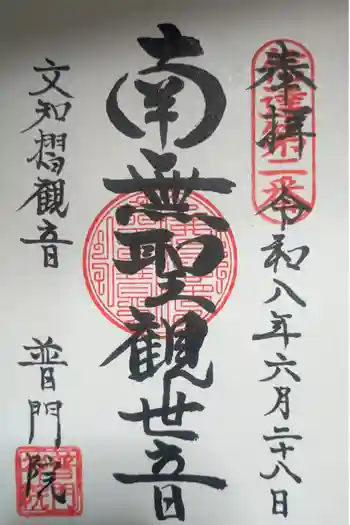 奉拝 令和八年六月二十八日
南無聖観世音
文知摺観音
普門院